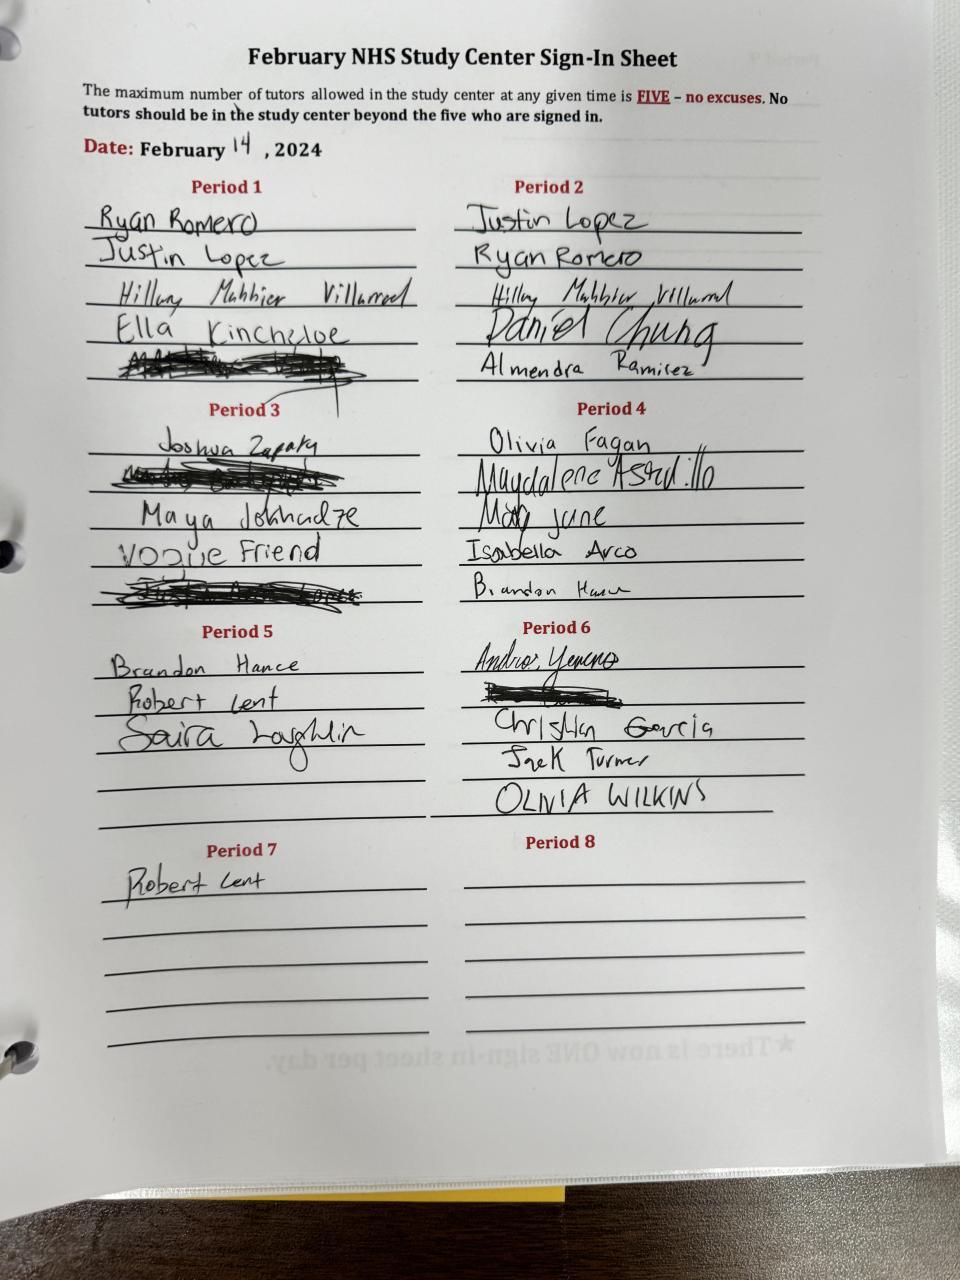 February NHS Study Center Sign-In Sheet
The maximum number of tutors allowed in the study center at any given time is FIVE – no excuses. No
tutors should be in the study center beyond the five who are signed in.
Date: February 14, 2024
Period 1
Ryan Romero
Justin Lopez
Hillary Mahbier Villarreal
Ella Kincheloe
Period 2
Justin Lopez
Ryan Romero
Hillary Mahbier Villarreal
Daniel Chung
Almendra Ramirez
Period 3
Joshua Zapata
Maya Jokhadze
Vogue Friend
Period 4
Olivia Fagan
Magdalene
June
Isabella Arco
Brandon Hance
Period 5
Brandon Hance
Robert Lent
Saira Loughlin
Period 6
Christian Garcia
Jack Turner
OLIVIA WILKINS
Period 7
Robert Lent
Period 8
★There is now ONE sign-in sheet per day.